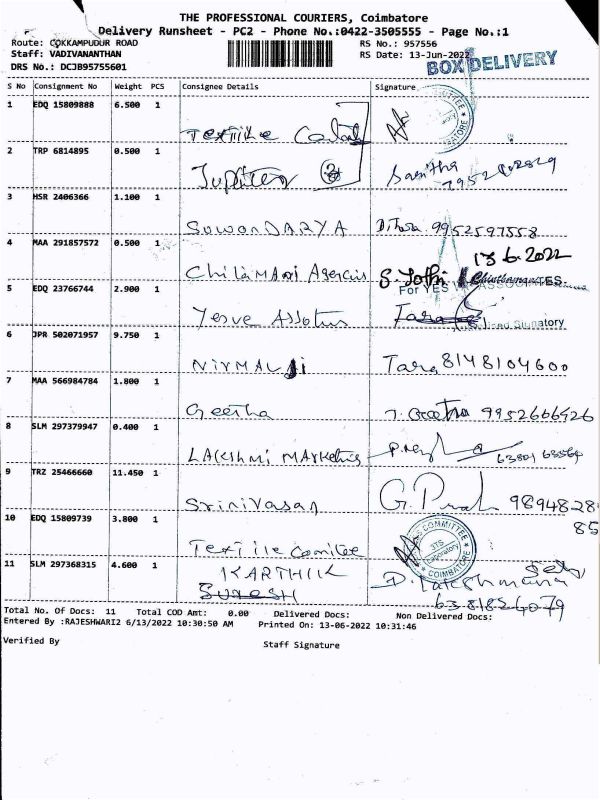 THE PROFESSIONAL COURIERS, Coimbatore
Delivery Runsheet - PC2 - Phone No.:0422-3505555 - Page No.:1
Route: COKKAMPUDUR ROAD
RS No.: 957556
Staff: VADIVANANTHAN
RS Date: 13-Jun-2022
DRS No.: DCJB95755601
BOX DELIVERY
S No Consignment No Weight PCS Consignee Details Signature
1 EDQ 15809888 6.500 1
2 TRP 6814895 0.500 1 Jupiter
3 HSR 2406366 1.100 1 SowonDARYA 9952597558
13.6.2022
4 MAA 291857572 0.500 1
5 EDQ 23766744 2.900 1 For YES
6 JPR 502071957 9.750 1 NIYMAL Ji Tara 8148104600
7 MAA 566984784 1.800 1 Geetha 9952606926
8 SLM 297379947 0.400 1 LAKshmi MARketing
9 TRZ 25466660 11.450 1 Srinivasan 9894828
85
10 EDQ 15809739 3.800 1 Textile Comitee
COMMITTEE COIMBATORE Laboratory
11 SLM 297368315 4.600 1 KARTHIK D. Lakshmana
SURESH 6381824079
Total No. Of Docs: 11 Total COD Amt: 0.00 Delivered Docs: Non Delivered Docs:
Entered By :RAJESHWARI2 6/13/2022 10:30:50 AM Printed On: 13-06-2022 10:31:46
Verified By
Staff Signature